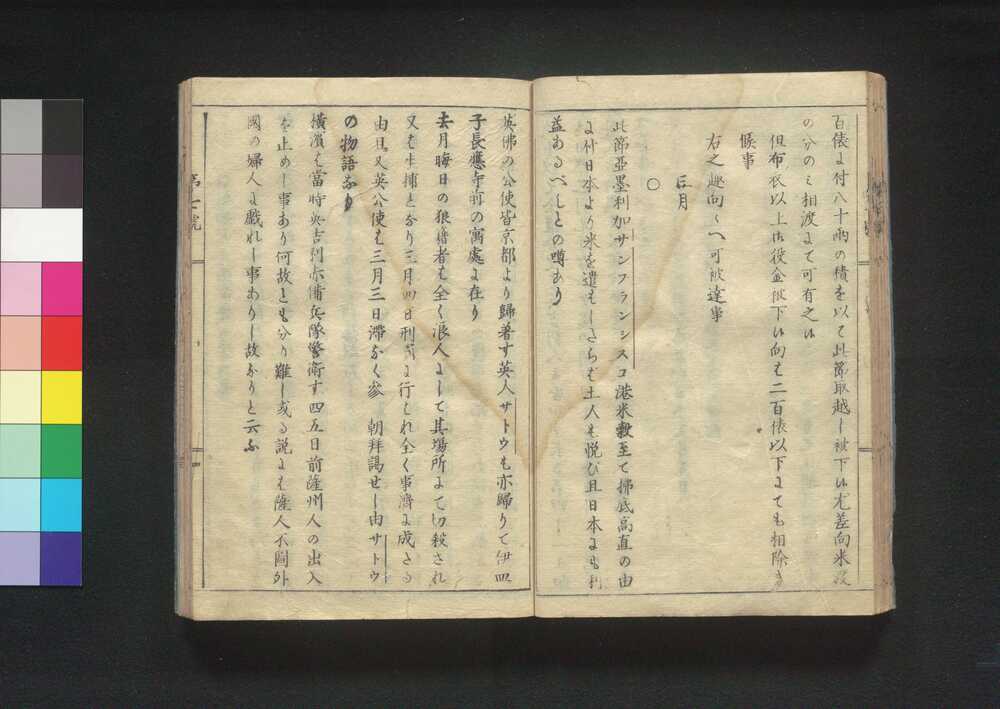 百俵に付八十両の積を以て此節取越し被下候尤差向米渡
の分のミ相渡にて可有之候
但布衣以上御役金被下候向も二百俵以下にても相除き
候事
右之趣向々へ可被達事
三月
〇
此節亞墨利加サンフランシスコ港米穀至て拂底高直の由
に付日本より米を遣もしたらば土人も悦び且日本にも利
益あるべしとの噂あり
英佛の公使皆京都より歸著す英人サトウも亦歸りて伊皿
子長應寺前の寓處に在り
去月晦日の狼藉者も全く浪人にして其場所にて切殺され
又も生捕となり三月四日刑罰に行もれ全く事濟に成さる
由且又英公使も三月三日滯なく參 朝拜謁せし由サトウ
の物語なり
横濱も當時英吉利赤備兵隊警衛す四五日前薩州人の出入
を止めし事あり何故とも分り難し或る説にも薩人不圖外
國の婦人に戯れし事ありし故なりと云ふ